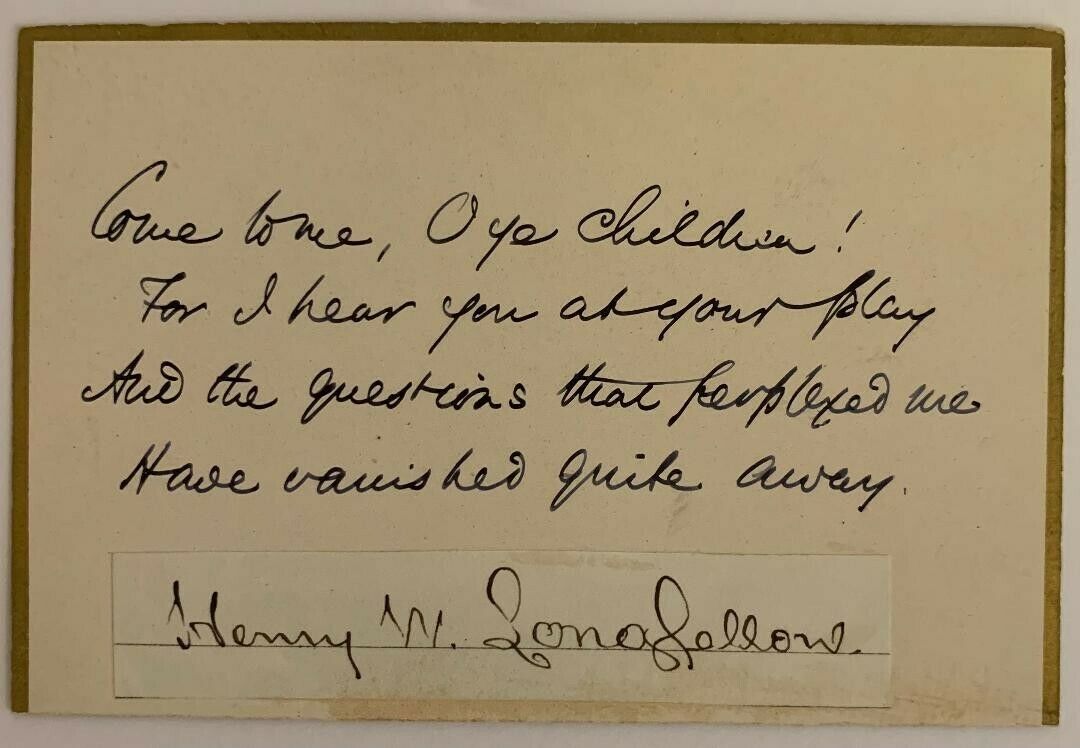 Come to me, O ye children!
For I hear you at your play
And the questions that perplexed me
Have vanished quite away.
Henry W. Longfellow.